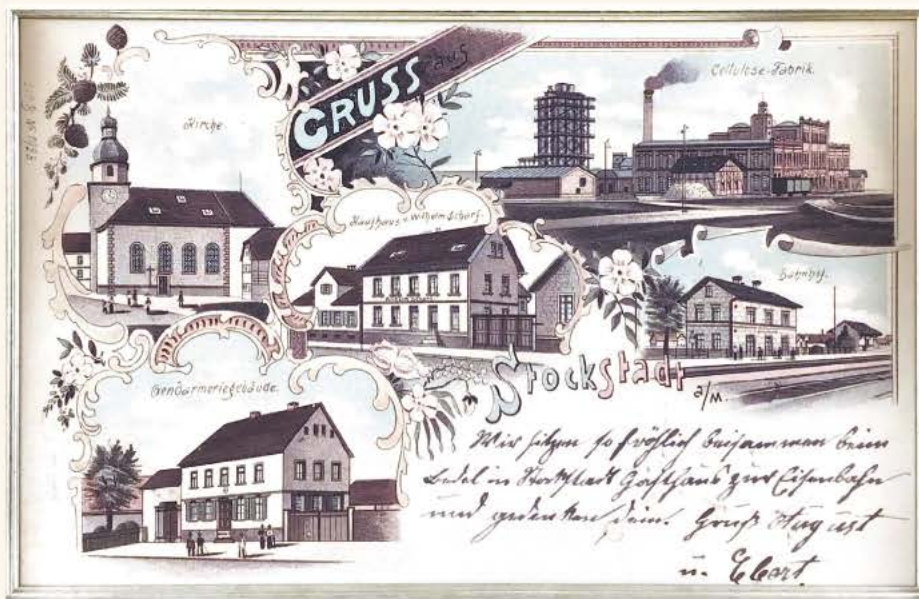 GRUSS aus
Cellulose-Fabrik.
Kirche.
Kaufhaus v. Wilhelm Scharf.
Bahnhof.
Stockstadt a/M.
Gendarmeriegebäude.
Wir sitzen so fröhlich beisammen beim
in Stockstadt Gasthaus zur Eisenbahn
und gedenken dein. Gruß August
u. Ebert.